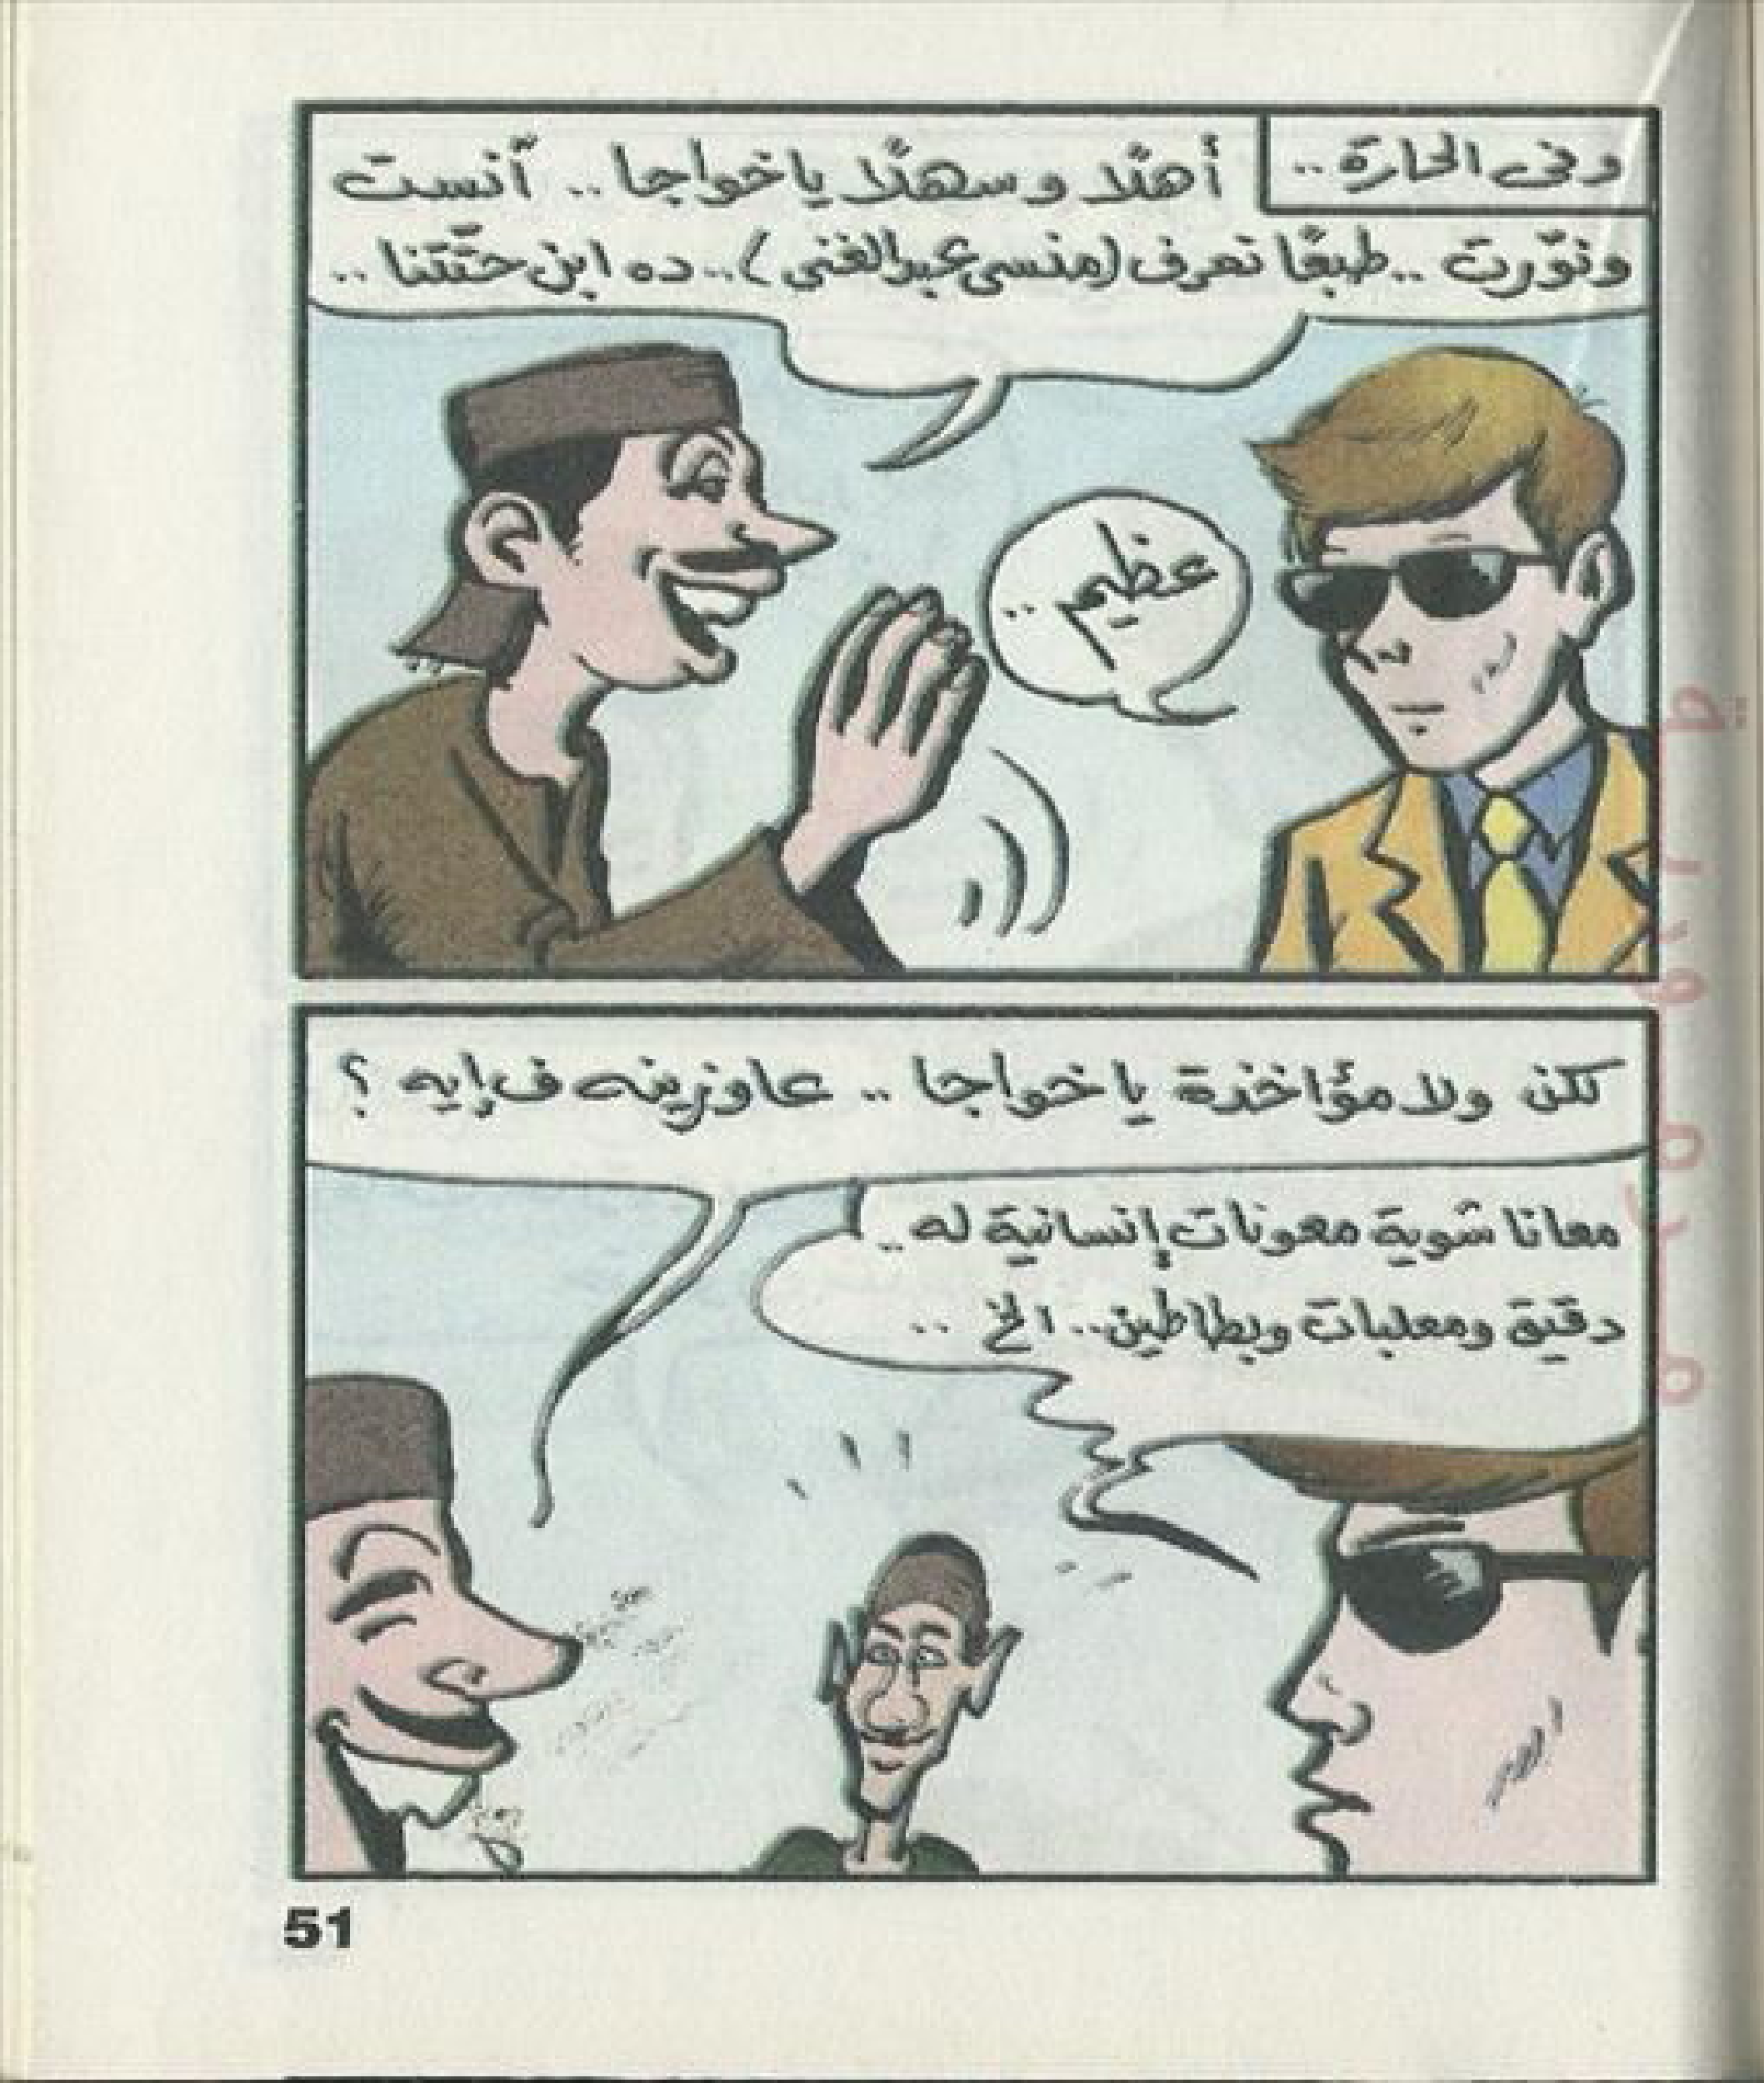 وفى الحارة..
أهلًا وسهلًا يا خواجا.. آنست
ونوّرت.. طبعًا تعرف (منسى عبدالغنى).. ده ابن حتّتنا..
عظيم..
لكن ولا مؤاخذة يا خواجا.. عاوزينه ف إيه؟
معانا شوية معونات إنسانية له..
دقيق ومعلبات وبطاطين.. الخ..
51